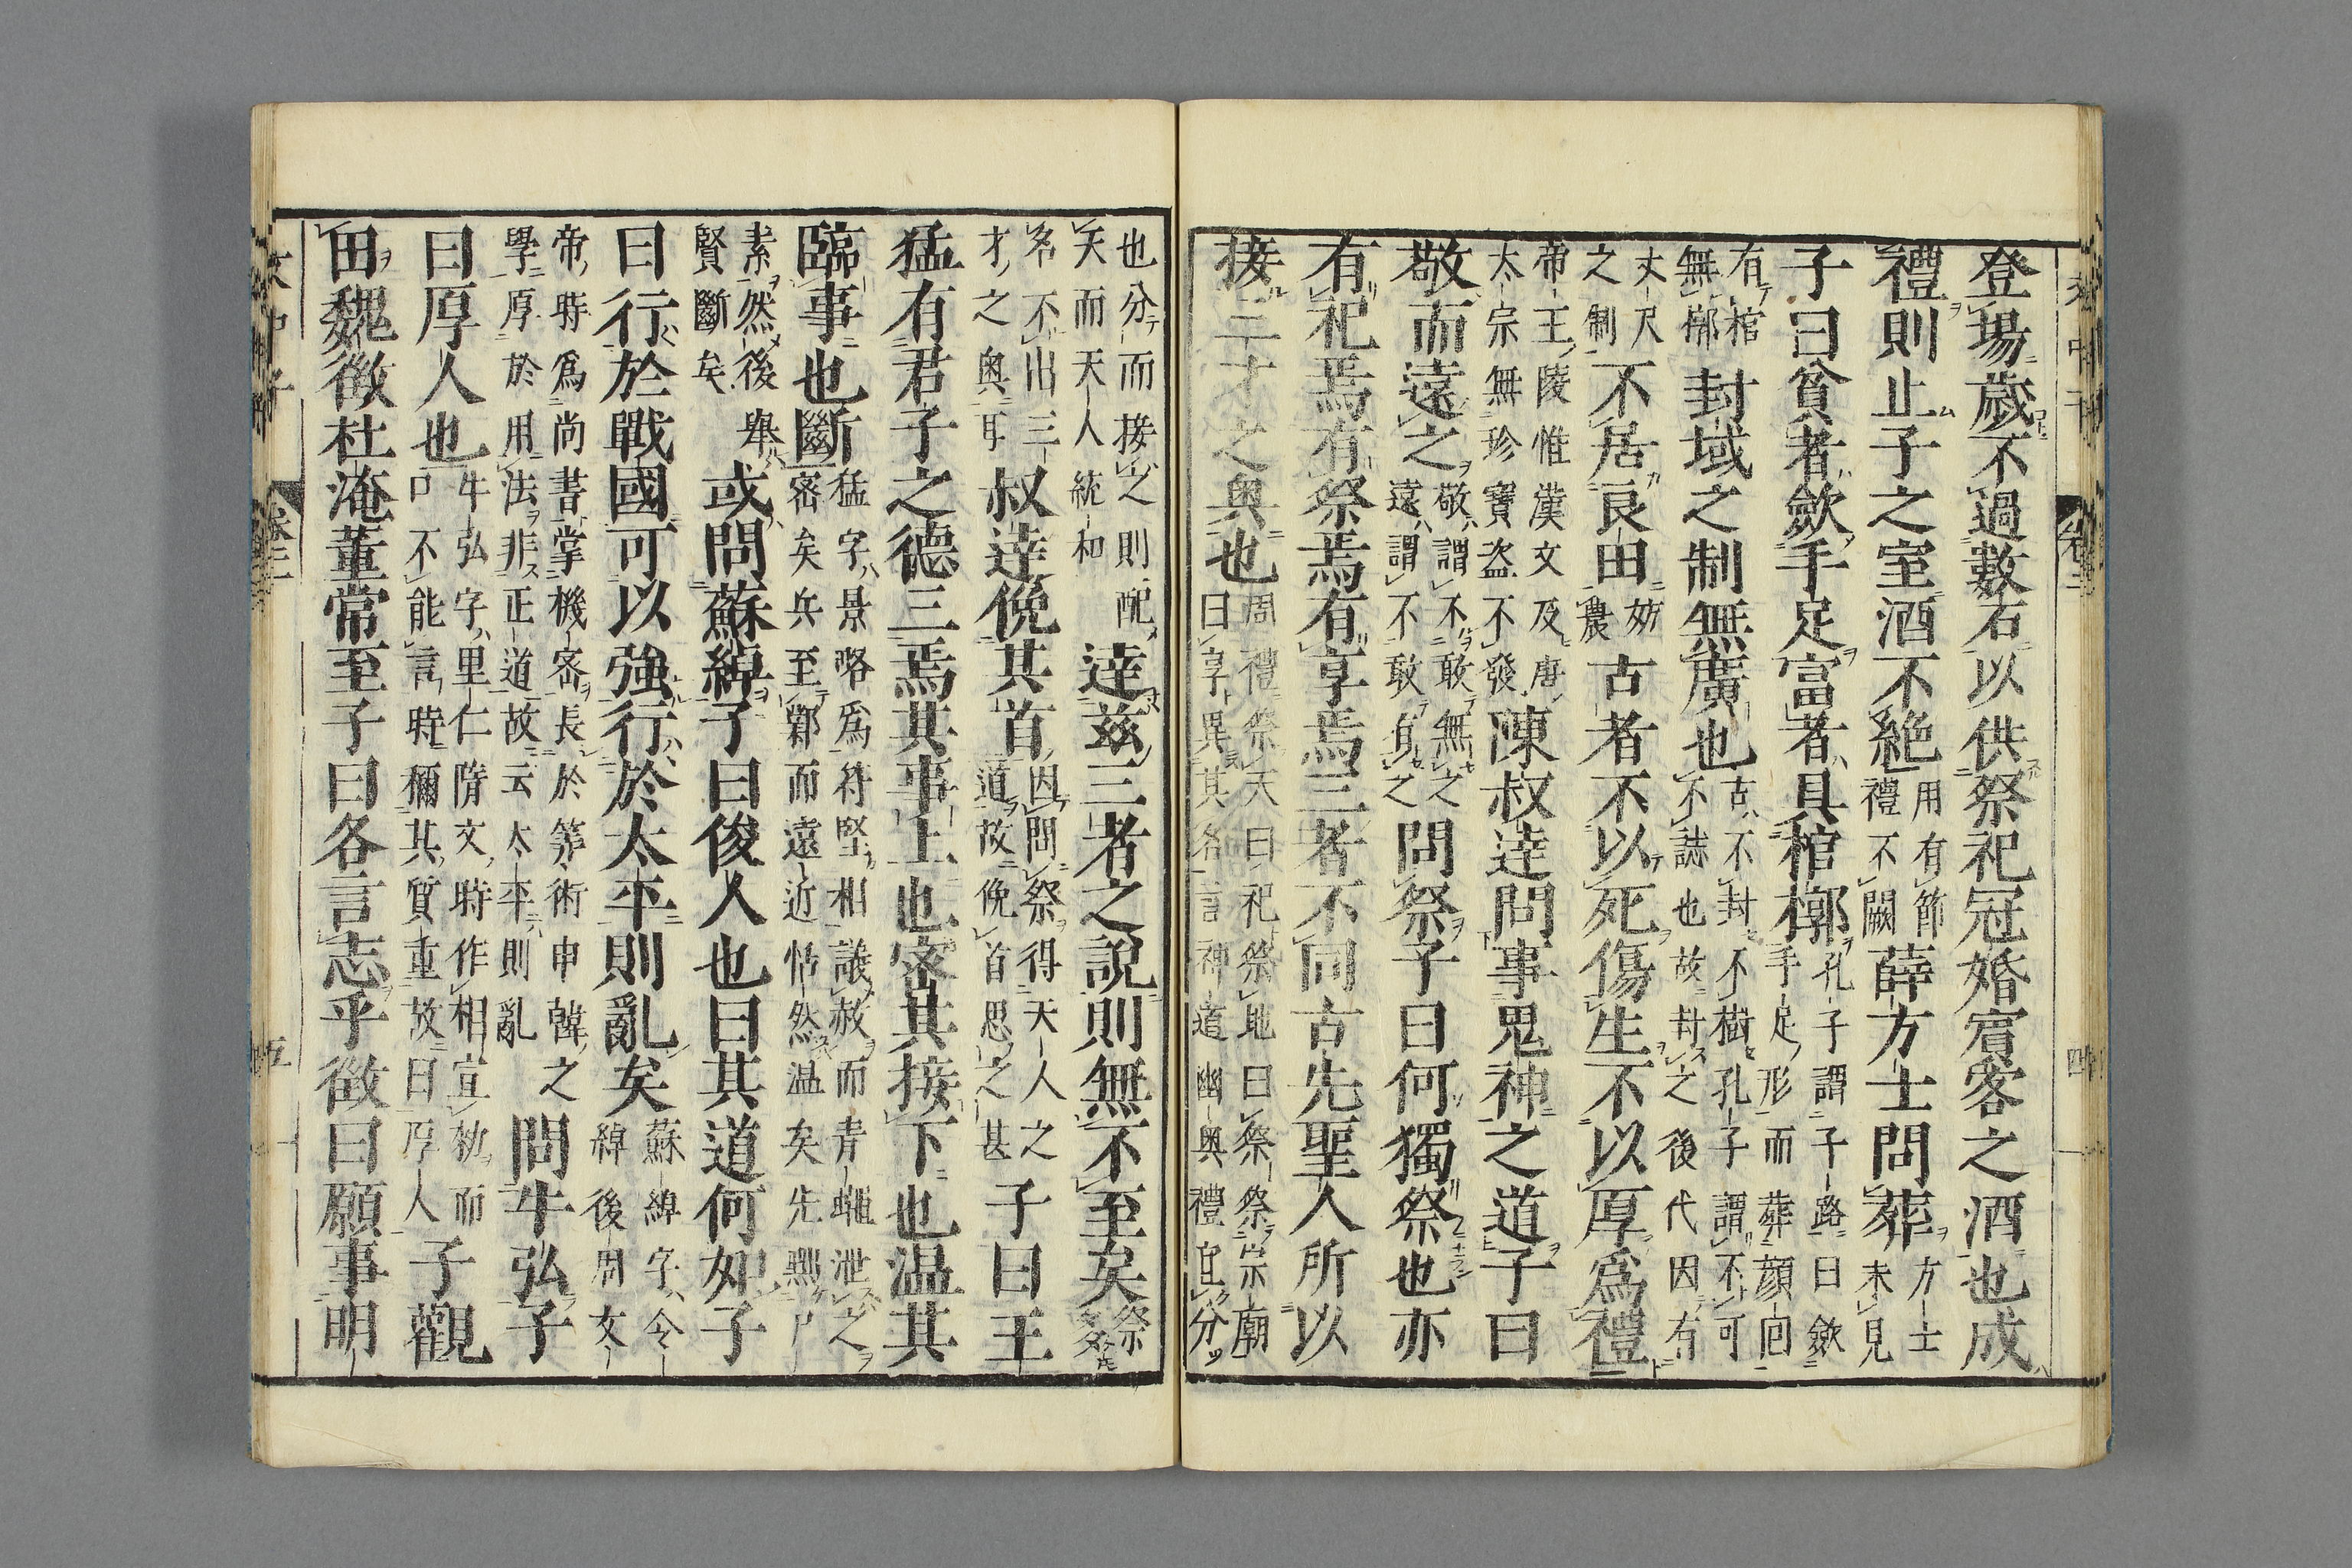 文中子
卷三
四
登場歲不過數石以供祭祀冠婚賓客之酒也成
禮則止子之室酒不絕
用有節
禮不闕
薛方士問葬
方士
未見
子曰貧者斂手足富者具棺槨
孔子謂子路曰斂
手足形而葬顏囘
有棺
無槨
封域之制無廣也
古不封不樹孔子謂不可
不誌也故封之後代因有
丈尺
之制
不居良田
妨
農
古者不以死傷生不以厚爲禮
帝王陵惟漢文及唐
太宗無珍寶盗不發
陳叔達問事鬼神之道子曰
敬而遠之
敬謂不敢無之
遠謂不敢有之
問祭子曰何獨祭也亦
有祀焉有祭焉有享焉三者不同古先聖人所以
接三才之奥也
周禮祭天曰祀祭地曰祭祭宗廟
曰享異其名言神道幽奥禮宜分
也分而接之則配
天而天人統和
達茲三者之說則無不至矣
祭
多
名不出三
才之奥耳
叔達俛其首
因問祭得天人之
道故俛首思之甚
子曰王
猛有君子之德三焉其事上也密其接下也温其
臨事也斷
猛字景略爲苻堅相議赦而青蠅泄之
密矣兵至鄴而遠近帖然温矣先興尸
素然後舉
賢斷矣
或問蘇綽子曰俊人也曰其道何如子
曰行於戰國可以強行於太平則亂矣
蘇綽字令
綽後周文
帝時爲尚書掌機密長於筭術申韓之
學厚於用法非正道故云太平則亂
問牛弘子
曰厚人也
牛弘字里仁隋文時作相宣勑而
口不能言時彌其質重故曰厚人
子觀
田魏徵杜淹董常至子曰各言志乎徵曰願事明
文中子
卷三
五